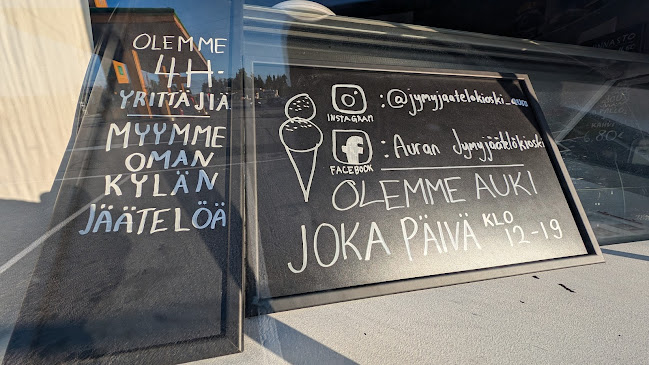 OLEMME
4H-
YRITTÄJIÄ
MYYMME
OMAN
KYLÄN
JÄÄTELÖÄ
INSTAGRAM
: @jymyjaatelokioski_aura
FACEBOOK
: Auran Jymyjäätelökioski
OLEMME AUKI
JOKA PÄIVÄ KLO
12-19